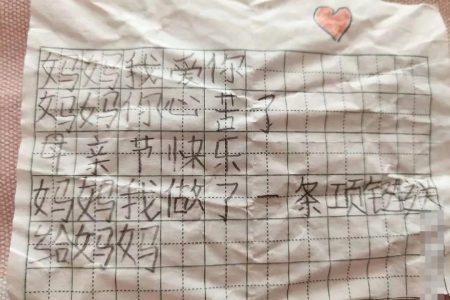 妈妈我爱你
妈妈们心苦了
母亲节快乐
妈妈我做了一条项
给妈妈